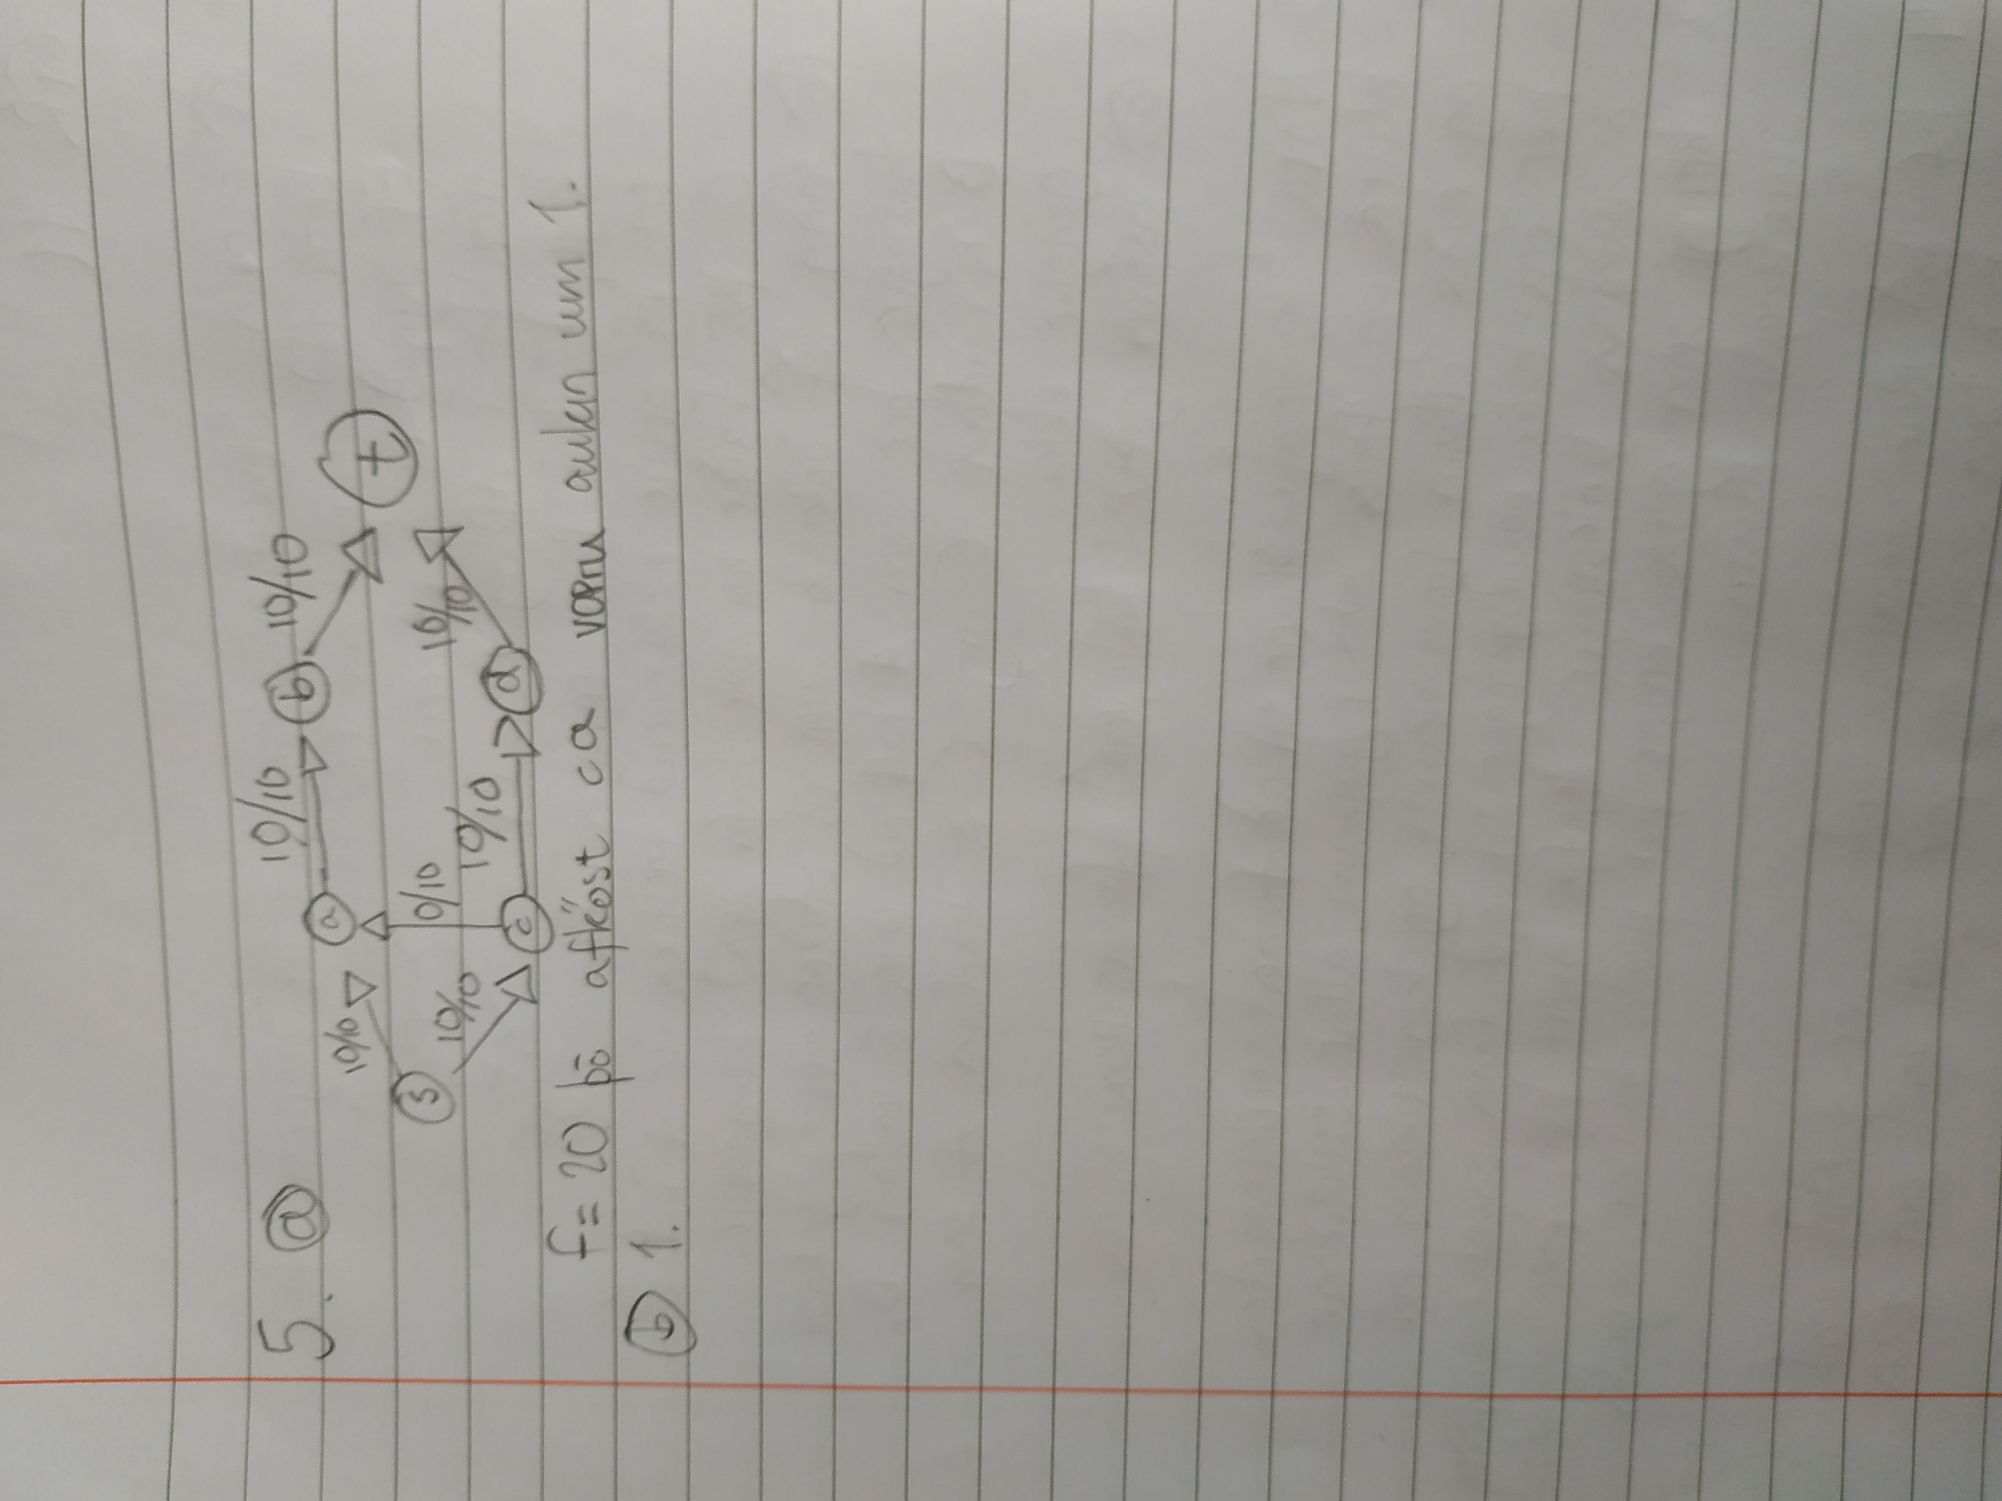 5. ⓐ
10/10 b 10/10
10/10 a
t
s 10/10 0/10 10/10 10/10
c d
f = 20 þó afköst ca væru aukin um 1.
ⓑ 1.